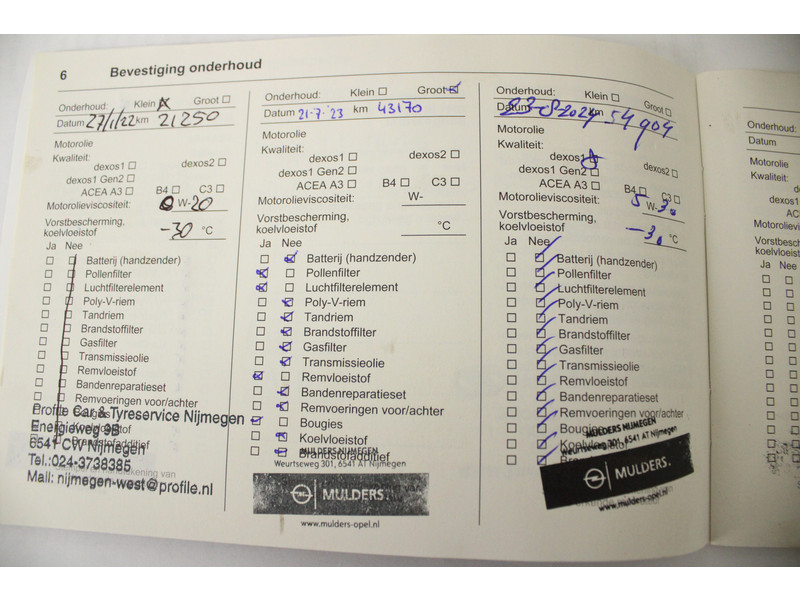 6 Bevestiging onderhoud
Onderhoud: Klein Groot
Datum 27/1/22 km 21250
Motorolie
Kwaliteit:
dexos1 dexos2
dexos1 Gen2
ACEA A3 B4 C3
Motorolieviscositeit: 0 W-20
Vorstbescherming,
koelvloeistof -30 °C
Ja Nee
Batterij (handzender)
Pollenfilter
Luchtfilterelement
Poly-V-riem
Tandriem
Brandstoffilter
Gasfilter
Transmissieolie
Remvloeistof
Bandenreparatieset
Remvoeringen voor/achter
Bougies
Koelvloeistof
Brandstofadditief
Profile Car & Tyreservice Nijmegen
Energieweg 9B
6541 CW Nijmegen
Tel.:024-3738385
Mail: nijmegen-west@profile.nl
Onderhoud: Klein Groot
Datum 21-7-'23 km 43170
Motorolie
Kwaliteit:
dexos1 dexos2
dexos1 Gen2
ACEA A3 B4 C3
Motorolieviscositeit: W-
Vorstbescherming,
koelvloeistof °C
Ja Nee
Batterij (handzender)
Pollenfilter
Luchtfilterelement
Poly-V-riem
Tandriem
Brandstoffilter
Gasfilter
Transmissieolie
Remvloeistof
Bandenreparatieset
Remvoeringen voor/achter
Bougies
Koelvloeistof
Brandstofadditief
MULDERS NIJMEGEN
Weurtseweg 301, 6541 AT Nijmegen
MULDERS.
www.mulders-opel.nl
Onderhoud: Klein Groot
Datum 23-8-2024 km 54904
Motorolie
Kwaliteit:
dexos1 dexos2
dexos1 Gen2
ACEA A3 B4 C3
Motorolieviscositeit: 5 W-30
Vorstbescherming,
koelvloeistof -30 °C
Ja Nee
Batterij (handzender)
Pollenfilter
Luchtfilterelement
Poly-V-riem
Tandriem
Brandstoffilter
Gasfilter
Transmissieolie
Remvloeistof
Bandenreparatieset
Remvoeringen voor/achter
Bougies
Koelvloeistof
MULDERS NIJMEGEN
Weurtseweg 301, 6541 AT Nijmegen
MULDERS.
www.mulders-opel.nl
Onderhoud:
Datum
Motorolie
Kwaliteit:
dexos1
ACEA
Motorolievisc
Vorstbesch
koelvloeistof
Ja Nee